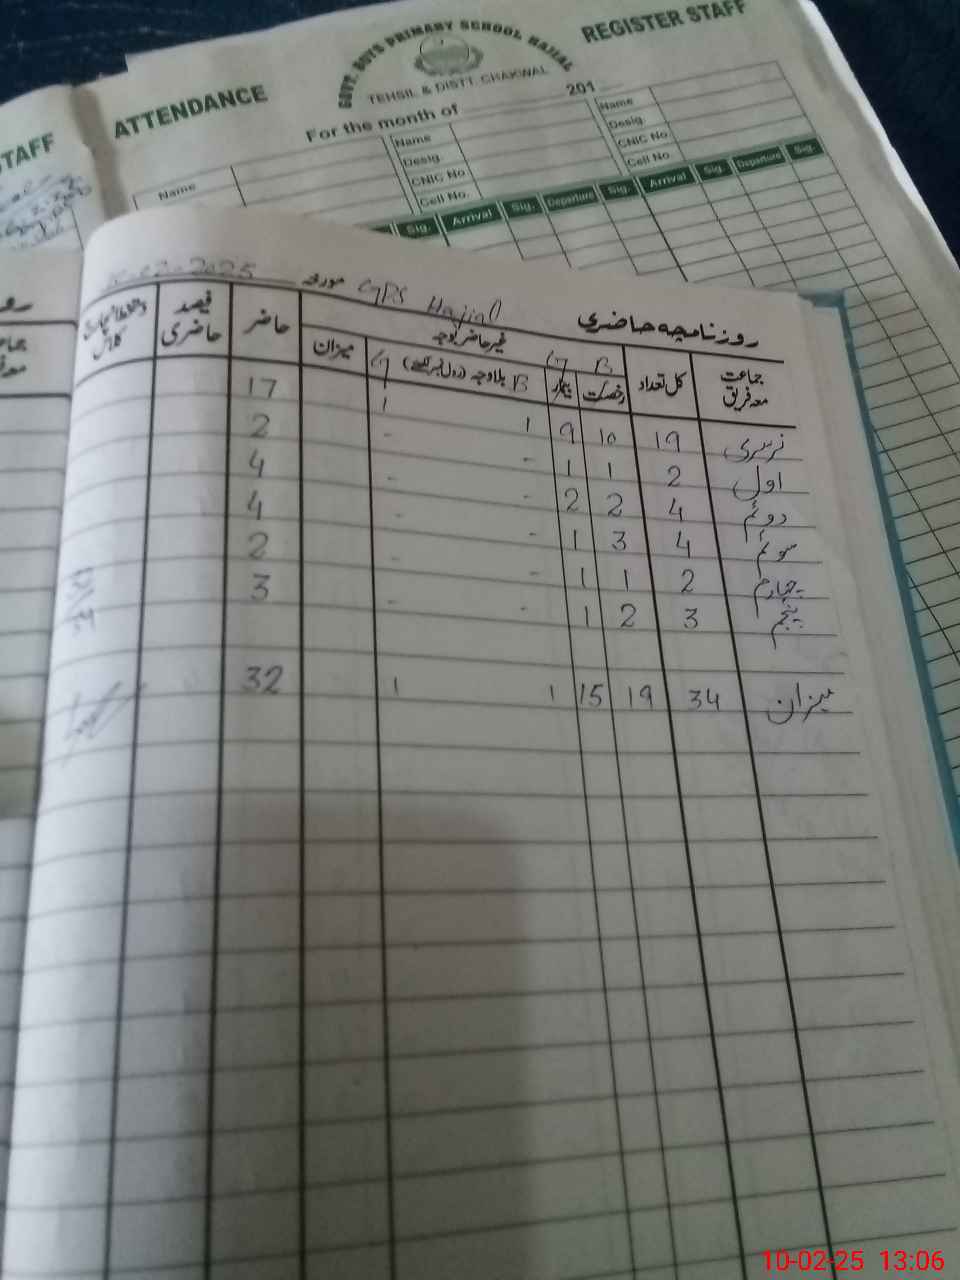 STAFF
ATTENDANCE
GOVT. BOYS PRIMARY SCHOOL HAJIAL
REGISTER STAFF
TEHSIL & DISTT. CHAKWAL
For the month of 201
Name
Name
Desig.
CNIC No
Cell No.
Name
Desig.
CNIC No
Cell No.
Sig. Arrival Sig. Departure Sig. Arrival Sig. Departure Sig.
روزنامچہ حاضری GPS Hajial مورخہ 10-02-2025
جماعت معہ فریق کل تعداد B رخصت G بیمار غیر حاضر بوجہ B بلاوجہ (رول نمبر لکھیے) G میزان حاضر فیصد حاضری کلاس
نرسری 19 10 9 1 1 17
اول 2 1 1 - - 2
دوئم 4 2 2 - - 4
سوئم 4 3 1 - - 4
چہارم 2 1 1 - - 2
پنجم 3 2 1 3
میزان 34 19 15 1 1 32
10-02-25 13:06